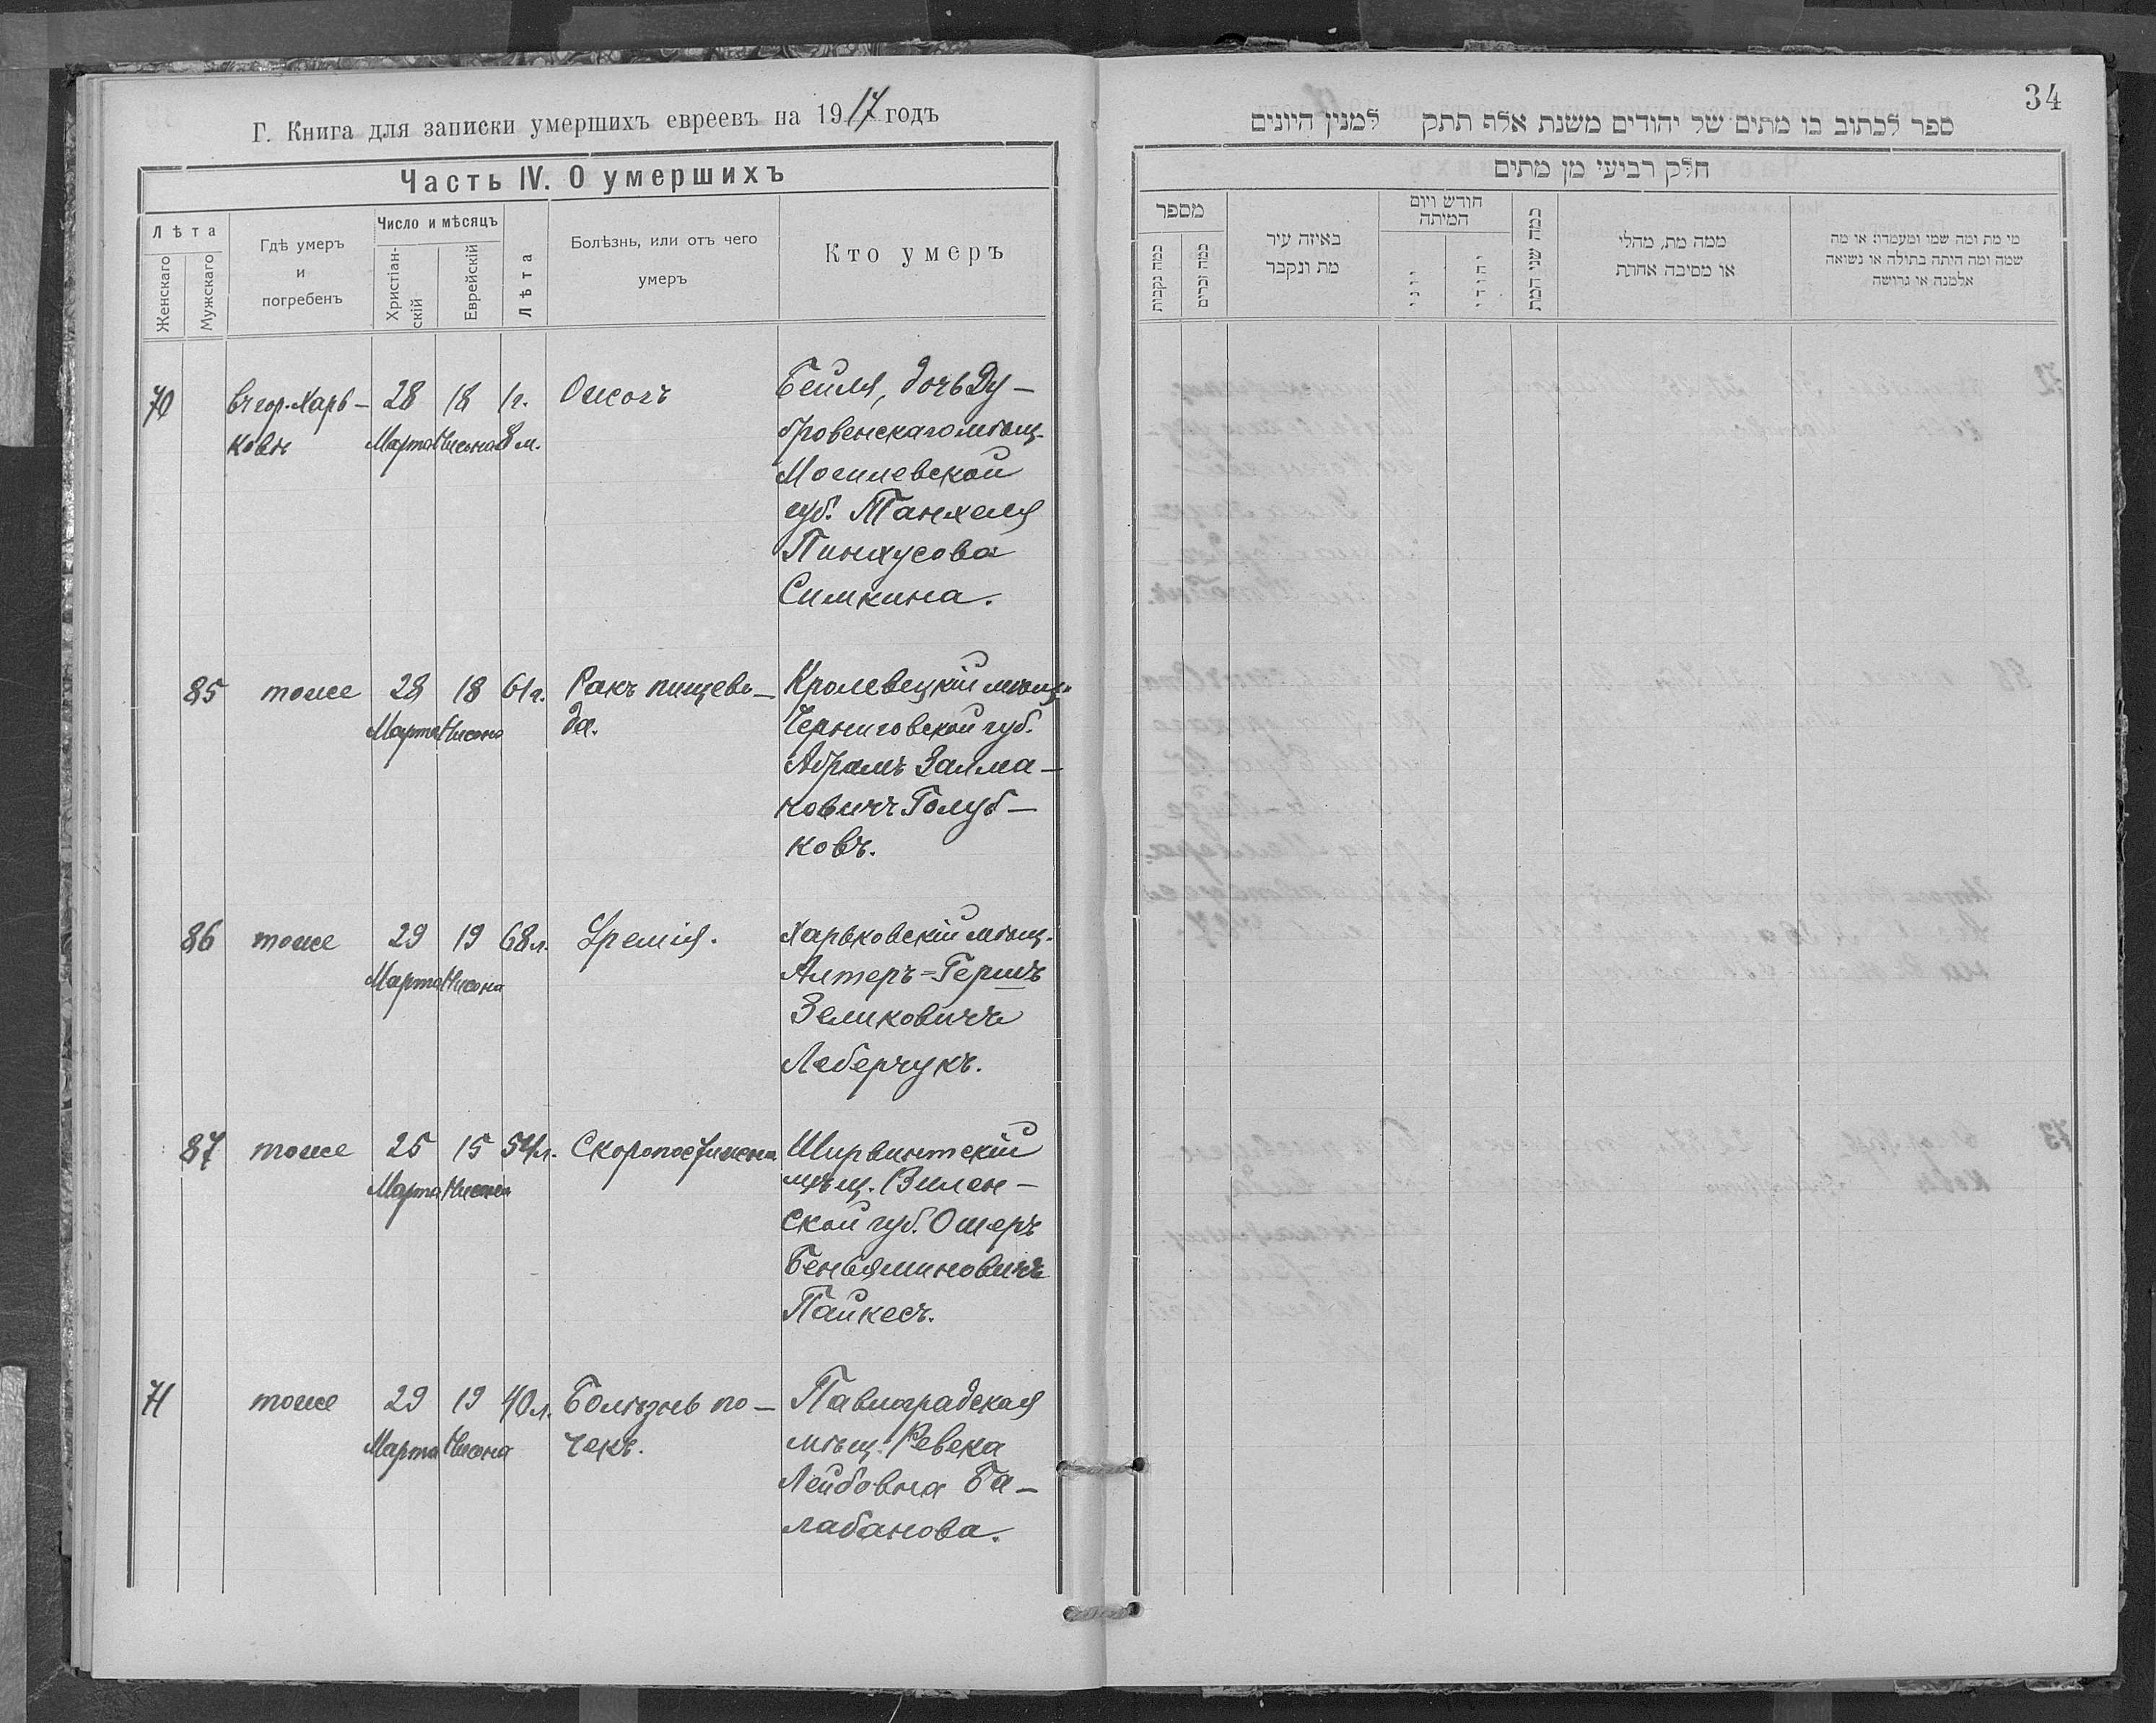 Г. Книга для записки умершихъ евреевъ на 1917 годъ
Часть IV. О умершихъ
Лѣта
Женскаго
Мужскаго
Гдѣ умеръ
и
погребенъ
Число и мѣсяцъ
Христіан-
скій
Еврейскій
Лѣта
Болѣзнь, или отъ чего
умеръ
Кто умеръ
70 въ гор. Харь- 28 18 1 г. Ожогъ Бейля, дочь Ду-
ковѣ Марта Нисона 8 м. бровенскаго мѣщ.
Могилевской
губ. Танхеля
Пинхусова
Симкина.
85 тоже 28 18 61 г. Ракъ пищево- Кролевецкій мѣщ.
Марта Нисона да. Черниговской губ.
Абрамъ Залма-
новичъ Голуб-
ковъ.
86 тоже 29 19 68 л. Уремія. Харьковскій мѣщ.
Марта Нисона Алтеръ=Гершъ
Зеликовичъ
Леберчукъ.
87 тоже 25 15 54 л. Скоропостижно Ширвинтскій
Марта Нисона мѣщ. Вилен-
ской губ. Ошеръ
Беньяминовичъ
Пайкесъ.
71 тоже 29 19 40 л. Болѣзнь по- Павлоградская
Марта Нисона чекъ. мѣщ. Ревека
Лейбовна Ба-
лабанова.
34
ספר לכתוב בו מתים של יהודים משנת אלף תתק למנין היונים
חלק רביעי מן מתים
מספר
כמה נקבות
כמה זכרים
באיזה עיר
מת ונקבר
חודש ויום
המיתה
יוני
יהודי
כמה שני המת
ממה מת, מחלי
או מסיבה אחרת
מי מת ומה שמו ומעמדו או מה
שמה ומה היתה בתולה או נשואה
אלמנה או גרושה